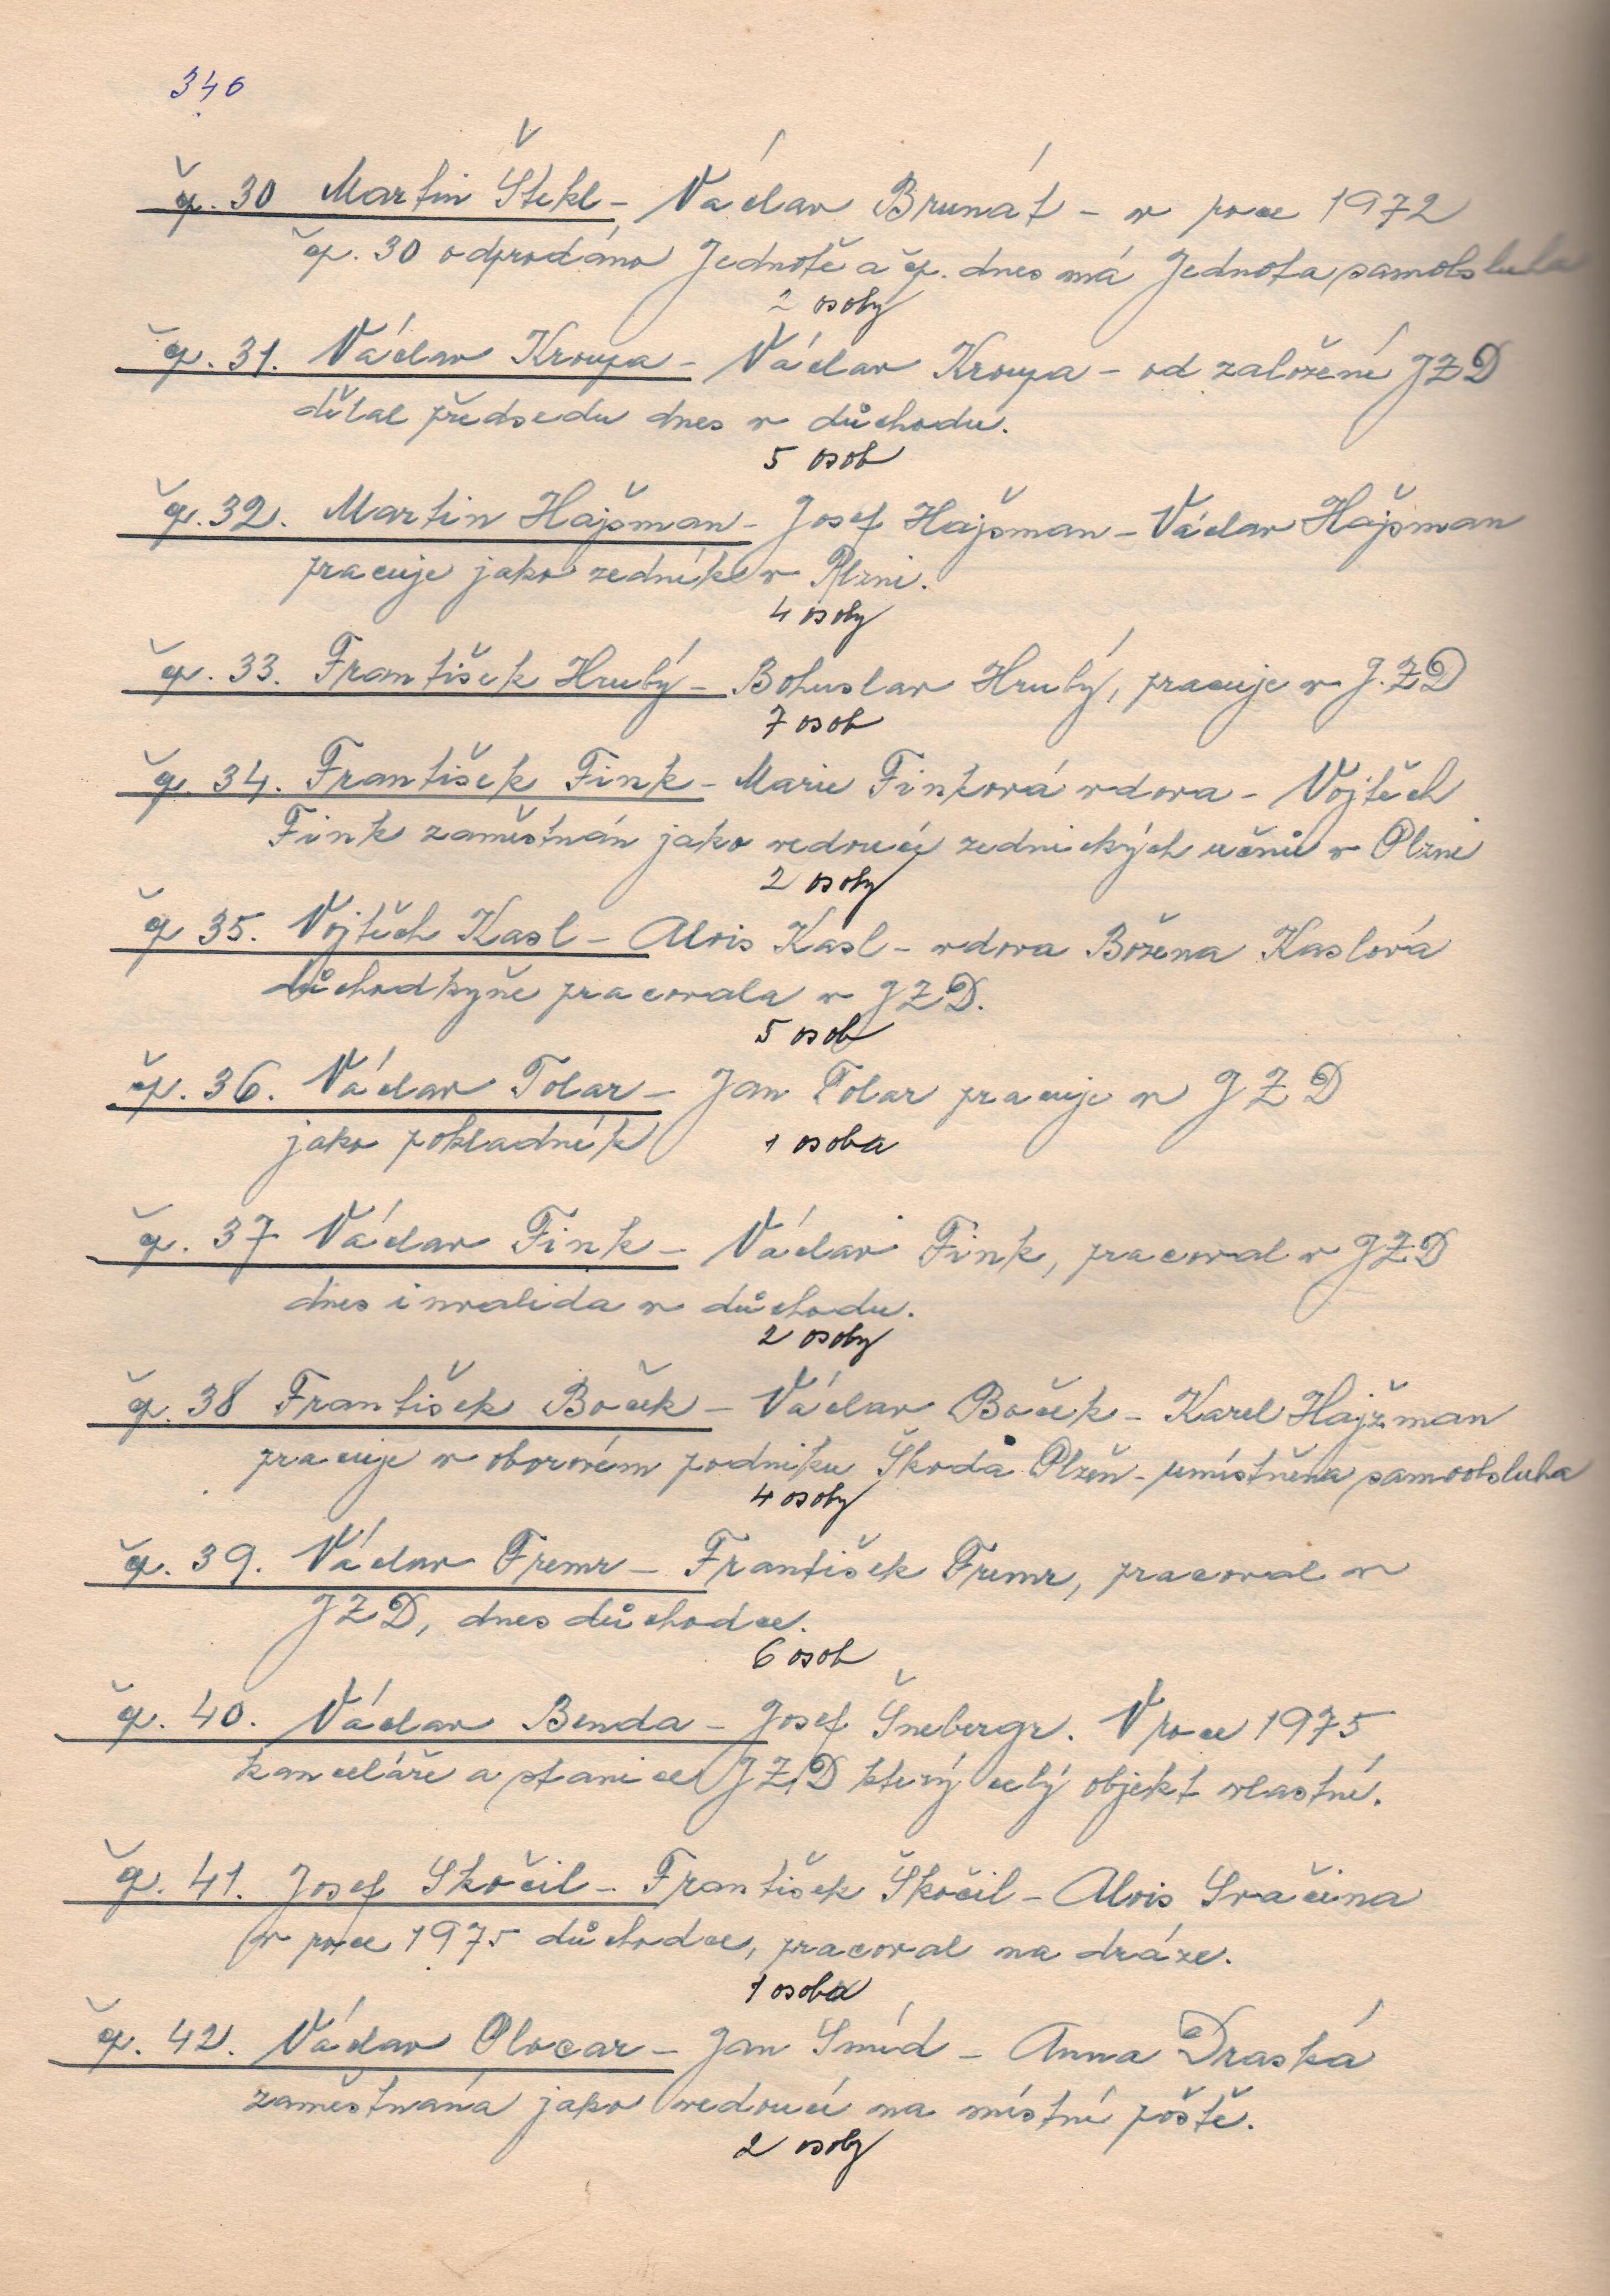 340
čp. 30 Martin Štekl - Václav Brunát - v roce 1972
čp. 30 odprodáno Jednotě a čp. dnes má Jednota samobsluha
2 osoby
čp. 31. Václav Kroupa - Václav Kroupa - od založení JZD
dělal předsedu dnes v důchodu.
5 osob
čp. 32. Martin Hajšman - Josef Hajšman - Václav Hajšman
pracuje jako zedník v Plzni.
4 osoby
čp. 33. František Hrubý - Bohuslav Hrubý, pracuje v J.Z.D
7 osob
čp. 34. František Fink - Marie Finková vdova - Vojtěch
Fink zaměstnán jako vedoucí zednických učňů v Plzni
2 osoby
čp 35. Vojtěch Kasl - Alois Kasl - vdova Božena Kaslová
důchodkyně pracovala v JZD.
5 osob
čp. 36. Václav Tolar - Jan Tolar pracuje v JZD
jako pokladník 1 osoba
čp. 37 Václav Fink - Václav Fink, pracoval v JZD
dnes invalida v důchodu.
2 osoby
čp. 38 František Boček - Václav Boček - Karel Hajžman
pracuje v oborovém podniku Škoda Plzeň - umístněna samoobsluha
4 osoby
čp. 39. Václav Fremr - František Fremr, pracoval v
JZD, dnes důchodce.
6 osob
čp. 40. Václav Benda - Josef Šnebergr. V roce 1975
kanceláře a stanice JZD který celý objekt vlastní.
čp. 41. Josef Skočil - František Škočil - Alois Svačina
v roce 1975 důchodce, pracoval na dráze.
1 osoba
čp. 42. Václav Olocar - Jan Smíd - Anna Draská
zaměstnaná jako vedoucí na místní poště.
2 osoby